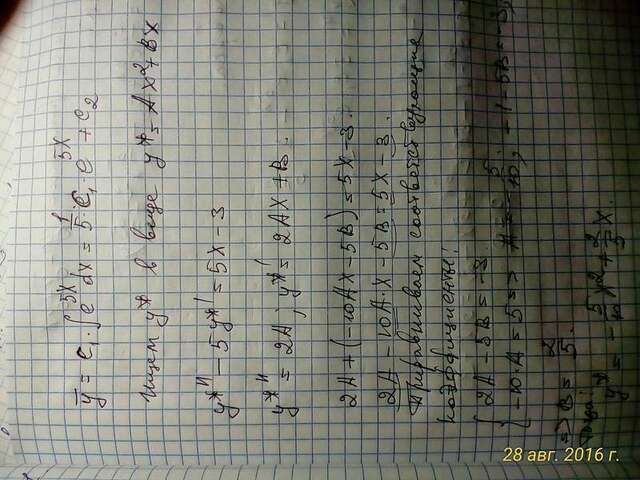 ȳ = C₁ · ∫e^{5x}dx = 1/5 · C₁ · e^{5x} + C₂
Ищем y* в виде y* = Ax² + Bx
y*'' - 5y*' = 5x - 3
y*'' = 2A ; y*' = 2Ax + B .
2A + (-10Ax - 5B) = 5x - 3 .
2A - 10A·x - 5B = 5x - 3 .
Приравниваем соответствующие
коэффициенты:
{ 2A - 5B = -3
-10·A = 5 => A = -5/10 ; -1 - 5B = -3 ;
=> B = 2/5 .
Тогда:
y* = -5/10 x² + 2/5 x .
28 авг. 2016 г.